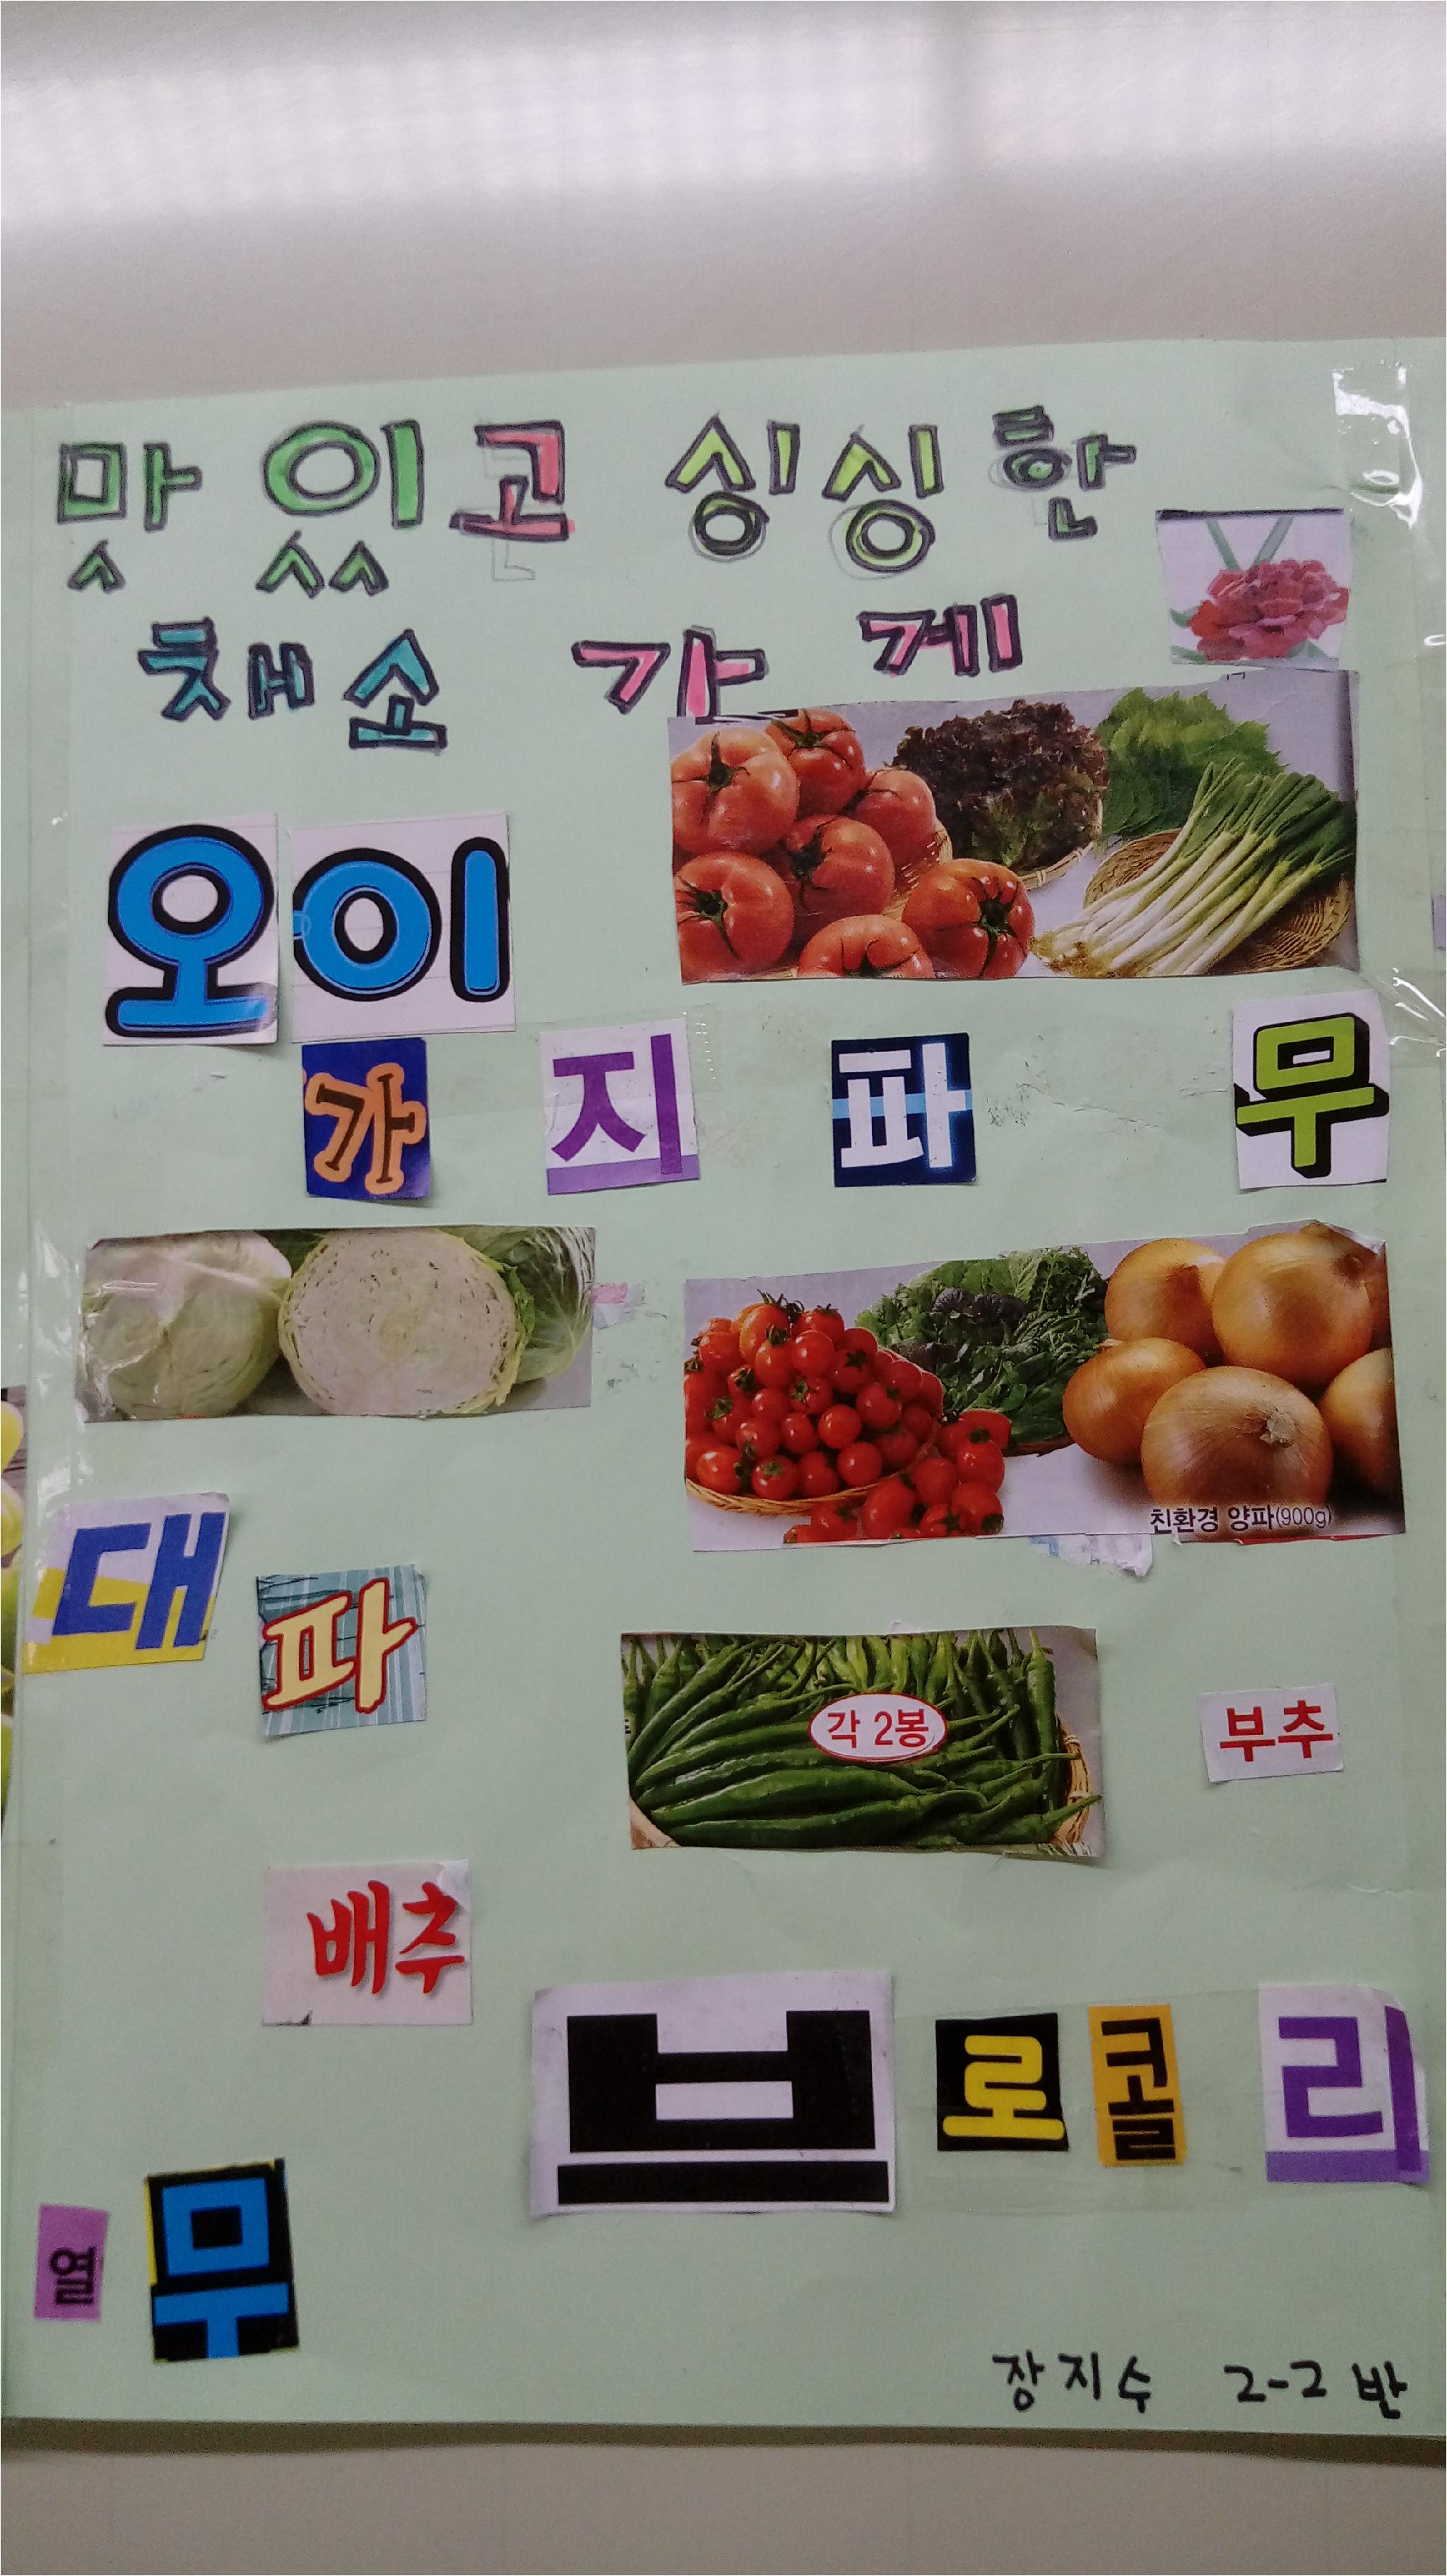 맛있고 싱싱한
채소 가게
오이
가 지 파 무
친환경 양파(900g)
대파
각 2봉
부추
배추
브로콜리
열무
장지수 2-2반